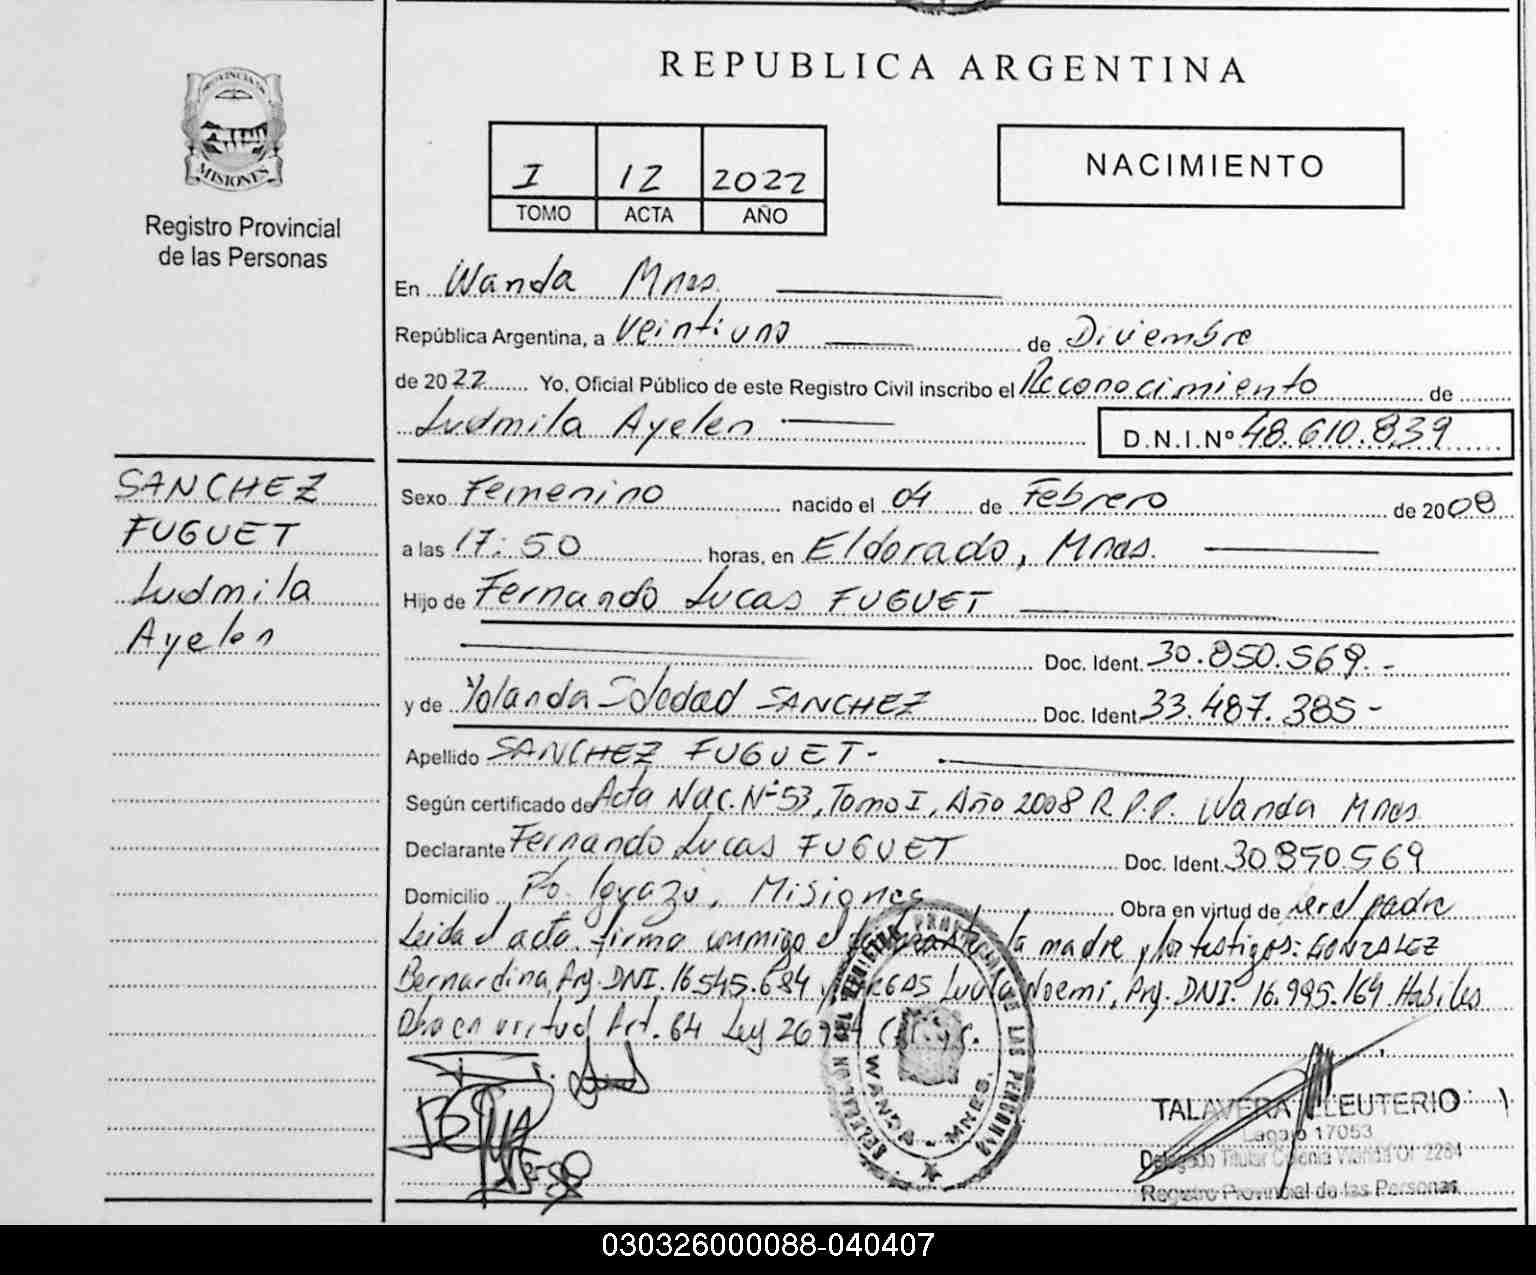 PROVINCIA DE
MISIONES
Registro Provincial
de las Personas
SANCHEZ
FUGUET
Ludmila
Ayelen
REPUBLICA ARGENTINA
I 12 2022
TOMO ACTA AÑO
NACIMIENTO
En Wanda Mnes.
República Argentina, a Veintiuno de Diciembre
de 2022 Yo, Oficial Público de este Registro Civil inscribo el Reconocimiento de
Ludmila Ayelen D.N.I.Nº 48.610.839
Sexo Femenino nacido el 04 de Febrero de 2008
a las 17:50 horas, en Eldorado, Mnes.
Hijo de Fernando Lucas FUGUET
Doc. Ident. 30.850.569.-
y de Yolanda Soledad SANCHEZ Doc. Ident. 33.487.385-
Apellido SANCHEZ FUGUET-
Según certificado de Acta Nac. Nº 53, Tomo I, Año 2008 R.P.P. Wanda Mnes.
Declarante Fernando Lucas FUGUET Doc. Ident. 30850569
Domicilio Pto. Iguazú, Misiones Obra en virtud de ser el padre
Leida el acta firma conmigo el la madre y los testigos: GONZALEZ
Bernardina, Arg. DNI. 16.545.684 y Noemi, Arg. DNI. 16.995.164 Habiles
Obra en virtud Art. 64 Ley
REGISTRO PROVINCIAL DE LAS PERSONAS
WANDA - MNES.
TALAVERA ELEUTERIO
Legajo 17053
Delegado Titular Colonia Wanda Of. 2284
Registro Provincial de las Personas
030326000088-040407